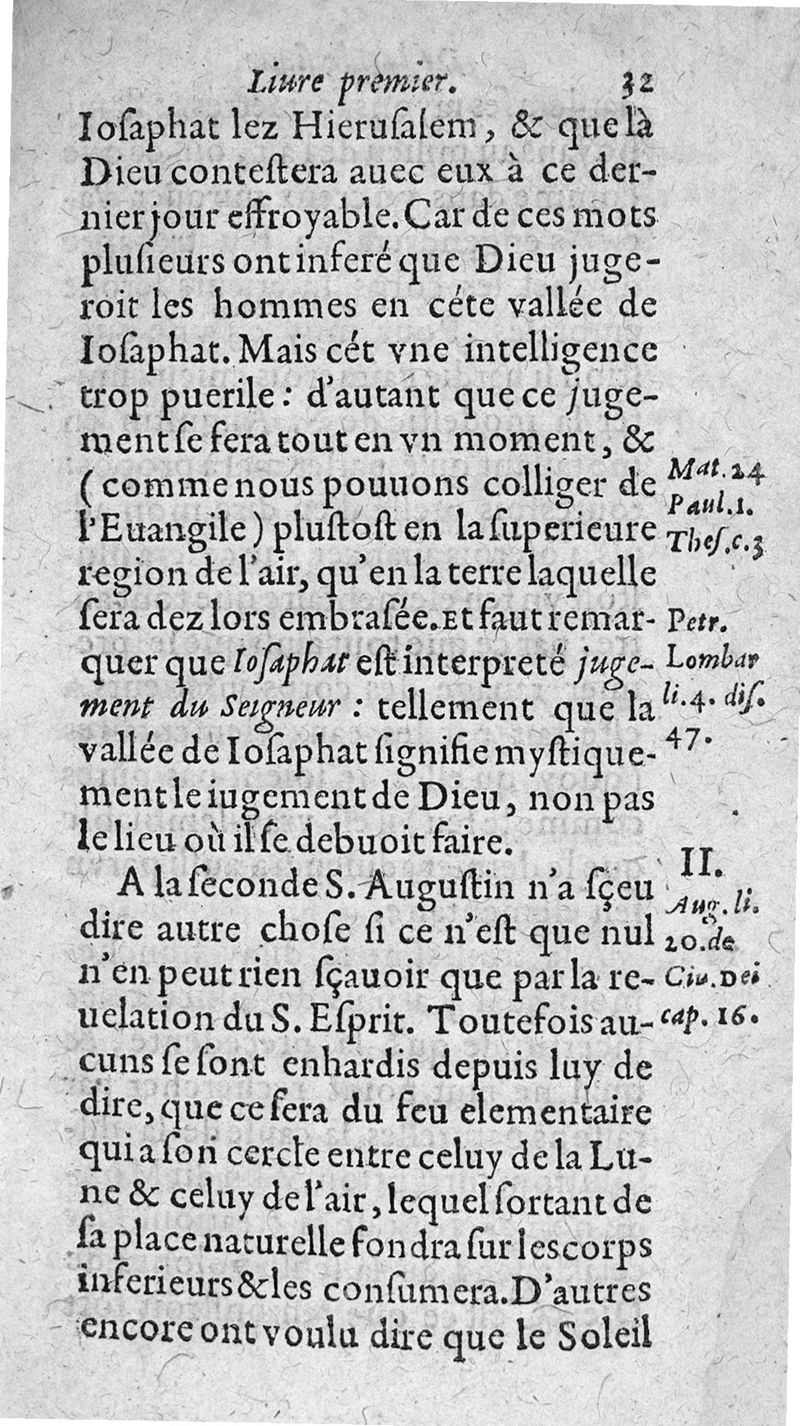 Liure premier. 32
Ioſaphat lez Hieruſalem, & que là
Dieu conteſtera auec eux à ce der-
nier jour effroyable. Car de ces mots
pluſieurs ont inferé que Dieu juge-
roit les hommes en céte vallée de
Ioſaphat. Mais cét vne intelligence
trop puerile : d'autant que ce juge-
ment ſe fera tout en vn moment, &
( comme nous pouuons colliger de
l'Euangile ) pluſtoſt en la ſuperieure
region de l'air, qu'en la terre laquelle
ſera dez lors embraſée. Et faut remar-
quer que Ioſaphat eſt interpreté juge-
ment du Seigneur : tellement que la
vallée de Ioſaphat ſignifie myſtique-
ment le iugement de Dieu, non pas
le lieu où il ſe debuoit faire.
A la ſeconde S. Auguſtin n'a ſçeu
dire autre choſe ſi ce n'eſt que nul
n'en peut rien ſçauoir que par la re-
uelation du S. Eſprit. Toutefois au-
cuns ſe ſont enhardis depuis luy de
dire, que ce ſera du feu elementaire
qui a ſon cercle entre celuy de la Lu-
ne & celuy de l'air, lequel ſortant de
ſa place naturelle fondra ſur les corps
inferieurs & les conſumera. D'autres
encore ont voulu dire que le Soleil
Mat. 24
Paul. 1.
Theſ. c. 3
Petr.
Lombar
li. 4. diſ.
47.
II.
Aug. li.
20. de
Ciu. Dei
cap. 16.